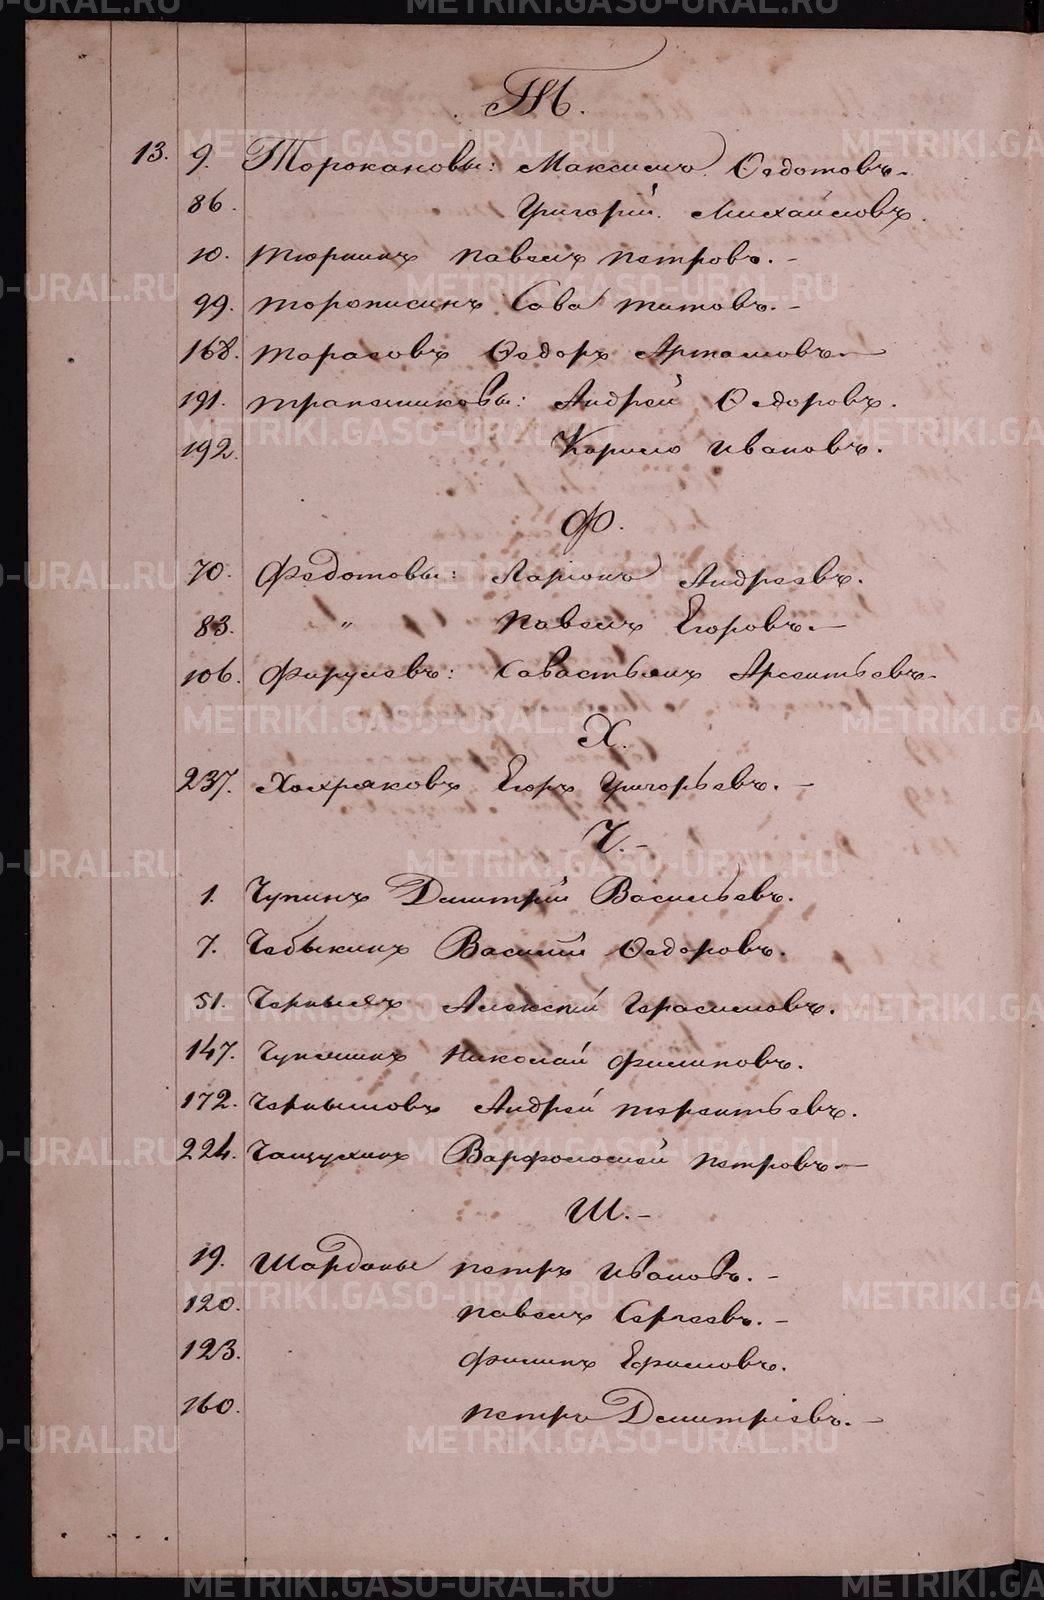 Т.
13. 9. Торокановы: Максимъ Ѳедотовъ.
86. Григорій Михайловъ.
10. Тюринъ Павелъ Петровъ.
99. Торописинъ Сава Титовъ.
168. Тарасовъ Ѳедоръ Артамовъ
191. Трапезниковы: Андрей Ѳедоровъ.
192. Карило Ивановъ.
Ф.
70. Федотовы: Ларіонъ Андреевъ.
83. " Павелъ Егоровъ.
106. Фирулевъ: Савастьянъ Арсентьевъ.
Х.
237. Хохряковъ Егоръ Григорьевъ.
Ч.
1. Чупинъ Дмитрій Васильевъ.
7. Чебыкинъ Василій Ѳедоровъ.
51. Черныхъ Алексѣй Герасимовъ.
147. Николай Филиповъ.
172. Чернышовъ Андрей Терентьевъ.
224. Чащухинъ Варфоломей Петровъ
Ш.
19. Петръ Ивановъ.
120. Павелъ Сергеевъ.
123. Филипъ Ефимовъ.
160. Петръ Дмитріевъ.
METRIKI.GASO-URAL.RU